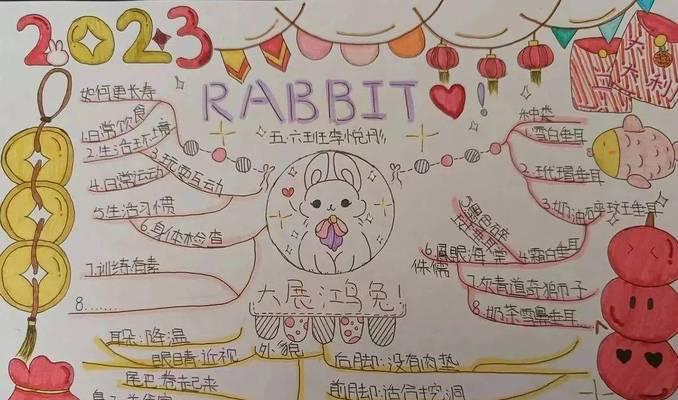 2023
RABBIT!
五.六班李悦彤
如何更长寿
1.日常饮食
2.生活环境
3.玩耍互动
4.日常运动
5.生活习惯
6.身体检查
7.训练有素
8.……
种类
1.雪白垂耳
2.玳瑁垂耳
3.奶油碎斑垂耳
4.霜白垂耳
6.凤眼海棠
侏儒
7.灰青道奇狮子
8.奶茶雪鼻垂耳
大展鸿兔!
外貌
耳朵:降温
眼睛:近视
尾巴:卷起来
后脚:没有肉垫
前脚:适合挖洞
大吉大利